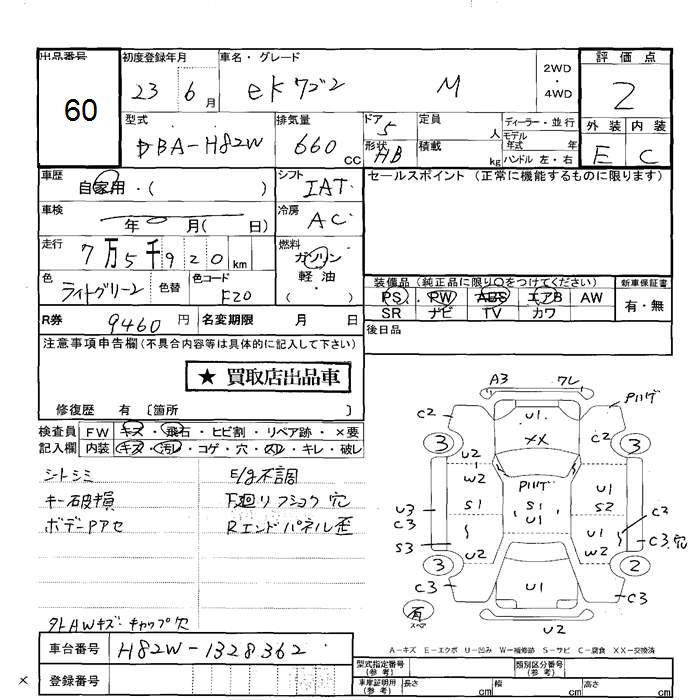 出品番号
60
初度登録年月
23 6 月
車名・グレード
eKワゴン M
2WD
・
4WD
評価点
2
外装 内装
E C
型式
DBA-H82W
排気量
660 CC
ドア
5
形状
HB
定員
人
積載
kg
ディーラー・並行
モデル年式 年
ハンドル 左・右
車歴
自家用・( )
シフト
IAT
セールスポイント (正常に機能するものに限ります)
車検
年 月( 日)
冷房
AC
走行
7万5千920km
燃料
ガソリン
・
軽油
( )
色
ライトグリーン
色替
色コード
F20
装備品 (純正品に限り○をつけてください)
PS・PW ABS エアB AW
SR ナビ TV カワ
新車保証書
有・無
R券
9460円
名変期限 月 日
後日品
注意事項申告欄(不具合内容等は具体的に記入して下さい)
★ 買取店出品車
修復歴 有 〔箇所 〕
検査員
記入欄
FW キズ・飛石・ヒビ割・リペア跡・×要
内装 キズ・汚レ・コゲ・穴・スレ・キレ・破レ
シートシミ
キー破損
ボデーアセ
E/g不調
下廻リフショク穴
Rエンドパネル歪
外AWキズ・キャップ欠
A3 フレ
C2 U1 PハゲC2
XX
3 3
U2
W2 Pハゲ U1
S1 S1 S2
U1
U3
C3
S3
U2 U1
W2
C2
C3穴
3 2
C3 U1 C3
有
スペア
U2
A-キズ E-エクボ U-凹み W-補修跡 S-サビ C-腐食 XX-交換済
車台番号
H82W-1328362
登録番号
×
型式指定番号
(参考)
類別区分番号
(参考)
車庫証明用
(参考)
長さ cm
幅 cm
高さ cm